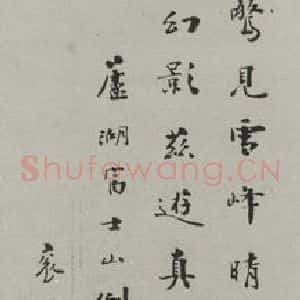 驚見雪峰晴
幻影茲遊真
蘆湖富士山倒
衮
Shufawang.CN